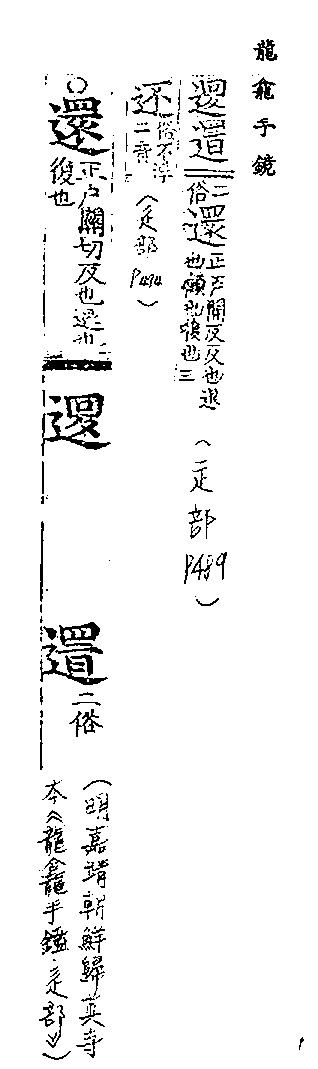 龍龕手鏡
二俗還正戶關反反也退也顧也復也三(辵部P489)
还俗不浮二音(辵部P494)
○還正戶關切反也退也復也
二俗
(明嘉靖朝鮮歸真寺本《龍龕手鑑·辵部》)